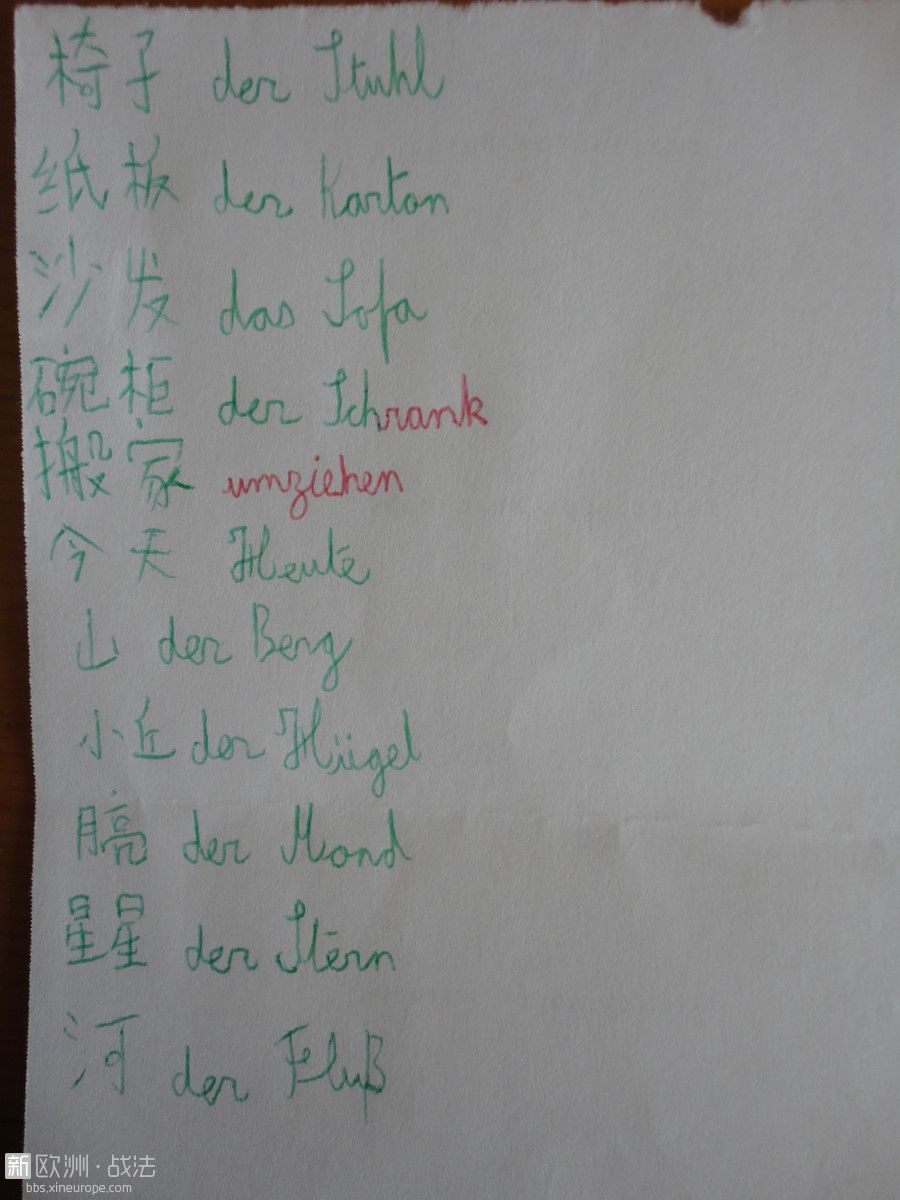 椅子 der Stuhl
纸板 der Karton
沙发 das Sofa
碗柜 der Schrank
搬家 umziehen
今天 Heute
山 der Berg
小丘 der Hügel
月亮 der Mond
星星 der Stern
河 der Fluß
新欧洲·战法
bbs.xineurope.com